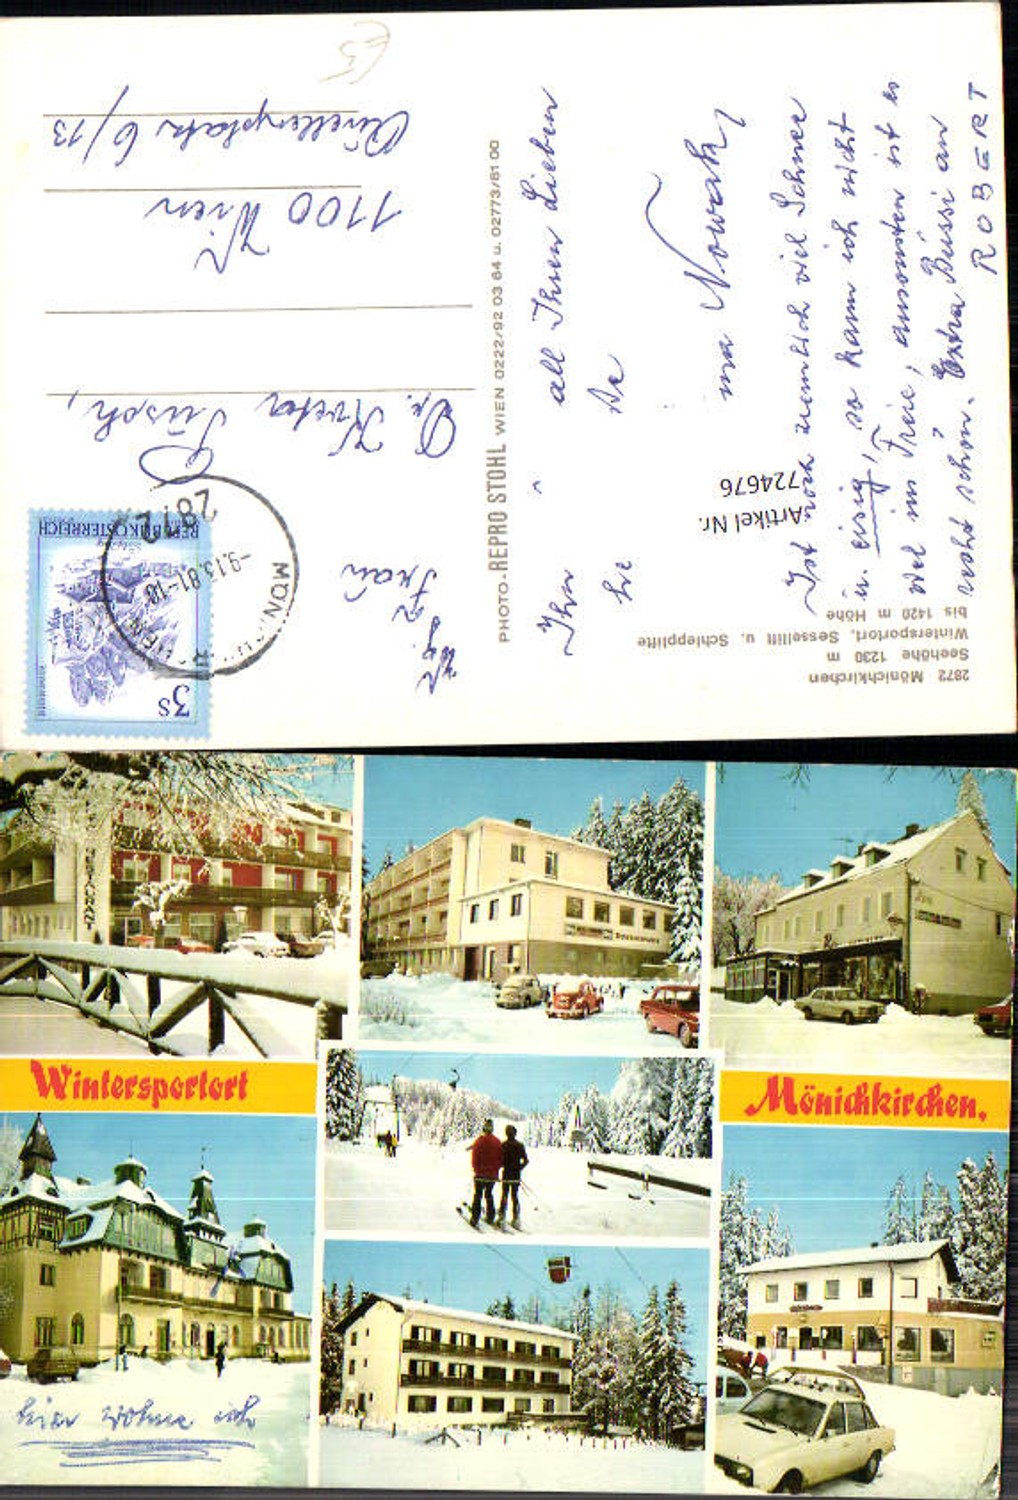 Ist noch ziemlich viel Schnee
u. eisig, so kann ich nicht
viel ins Freie, ansonsten ist es
recht schön. Extra Bussi an
ROBERT
all Ihren Lieben
Ihre
Nowak
Wg.
Frau
Dr. Kveta
1100 Wien
6/13
PHOTO-REPRO STOHL WIEN 0222/92 03 64 u. 02773/81 00
2872 Mönichkirchen
Seehöhe 1230 m
Wintersportort, Sessellift u. Schlepplifte
bis 1420 m Höhe
Artikel Nr.
724676
REPUBLIK ÖSTERREICH
3S
2872
-9.13.81-18
RESTAURANT
Wintersportort
Mönichkirchen,
hier wohne ich